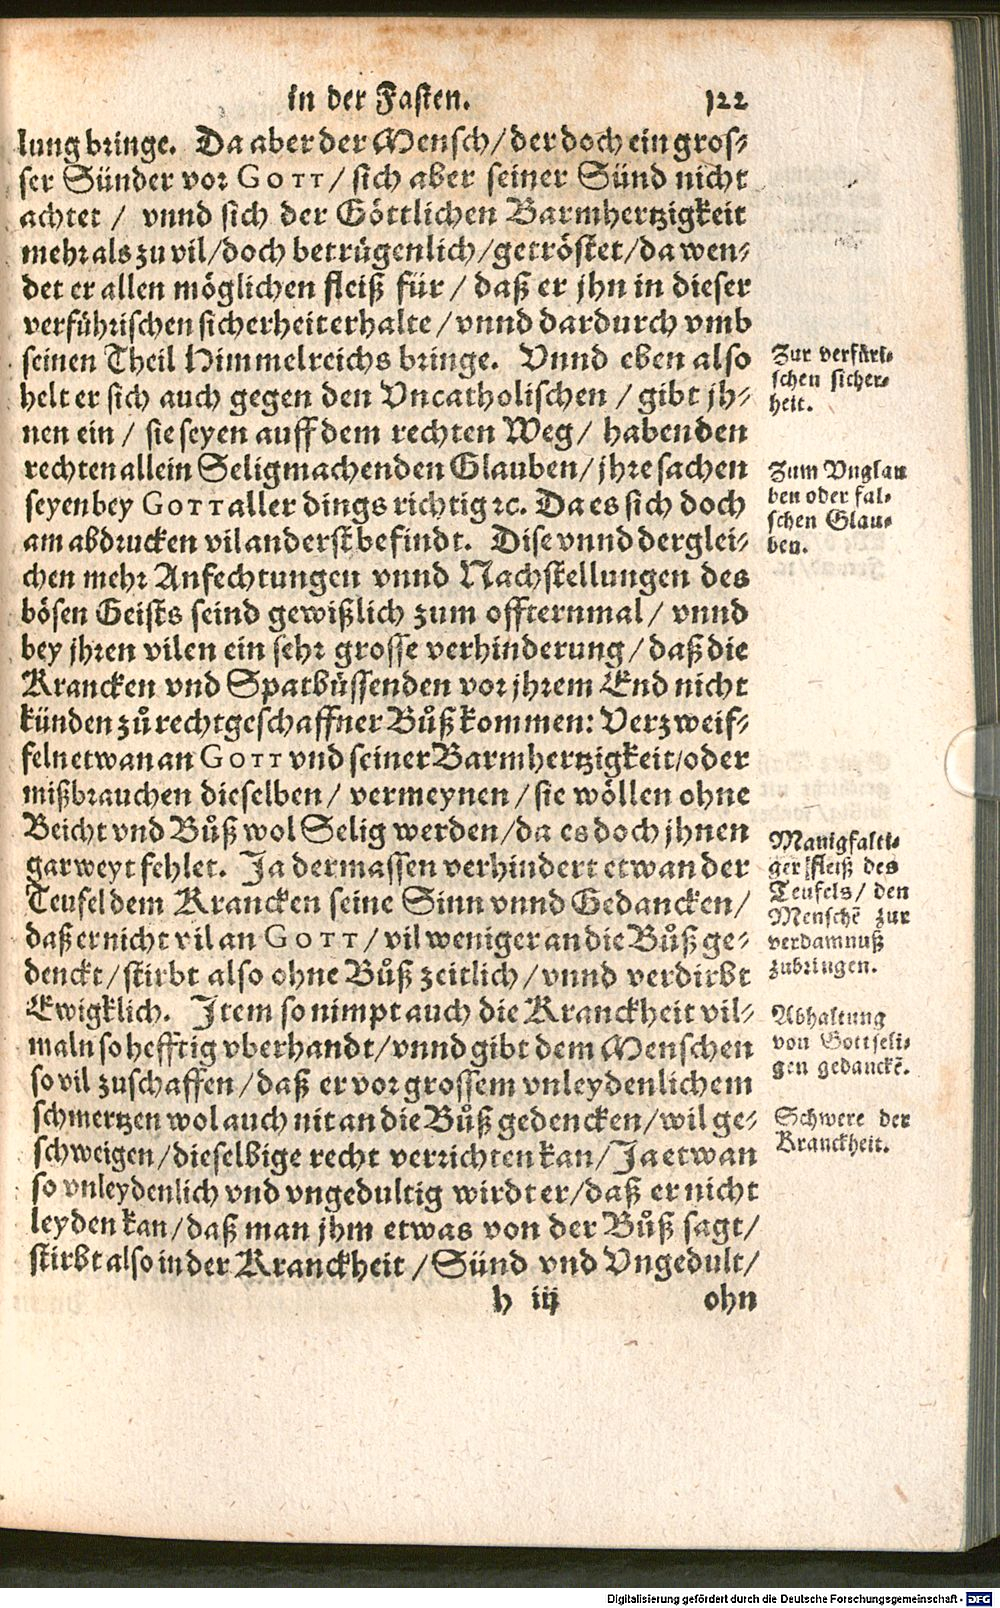 in der Fasten. 122
lung bringe. Da aber der Mensch/ der doch ein gros-
ser Sünder vor GOTT/ sich aber seiner Sünd nicht
achtet / vnnd sich der Göttlichen Barmhertzigkeit
mehr als zu vil/ doch betrügenlich/ getröstet/ da wen-
det er allen möglichen fleiß für / daß er jhn in dieser
verführischen sicherheit erhalte / vnnd dardurch vmb
seinen Theil Himmelreichs bringe. Vnnd eben also
helt er sich auch gegen den Vncatholischen / gibt jh-
nen ein / sie seyen auff dem rechten Weg/ haben den
rechten allein Seligmachenden Glauben/ jhre sachen
seyen bey GOTT aller dings richtig ꝛc. Da es sich doch
am abdrucken vil anderst befindt. Dise vnnd derglei-
chen mehr Anfechtungen vnnd Nachstellungen des
bösen Geists seind gewißlich zum offternmal/ vnnd
bey jhren vilen ein sehr grosse verhinderung/ daß die
Krancken vnd Spatbüssenden vor jhrem End nicht
künden zů rechtgeschaffner Bůß kommen: Verzweif-
feln etwan an GOTT vnd seiner Barmhertzigkeit/ oder
mißbrauchen dieselben/ vermeynen/ sie wöllen ohne
Beicht vnd Bůß wol Selig werden/ da es doch jhnen
gar weyt fehlet. Ja dermassen verhindert etwan der
Teufel dem Krancken seine Sinn vnnd Gedancken/
daß er nicht vil an GOTT/ vil weniger an die Bůß ge-
denckt/ stirbt also ohne Bůß zeitlich/ vnnd verdirbt
Ewigklich. Item so nimpt auch die Kranckheit vil-
maln so hefftig vberhandt/ vnnd gibt dem Menschen
so vil zuschaffen/ daß er vor grossem vnleydenlichem
schmertzen wol auch nit an die Bůß gedencken/ wil ge-
schweigen/ dieselbige recht verrichten kan/ Ja etwan
so vnleydenlich vnd vngedultig wirdt er/ daß er nicht
leyden kan/ daß man jhm etwas von der Bůß sagt/
stirbt also in der Kranckheit / Sünd vnd Vngedult/
h iij ohn
Zur verfüri-
schen sicher-
heit.
Zum Vnglau
ben oder fal-
schen Glau-
ben.
Manigfalti-
ger fleiß des
Teufels/ den
Menschẽ zur
verdamnuß
zubringen.
Abhaltung
von Gottseli-
gen gedanckẽ.
Schwere der
Kranckheit.
Digitalisierung gefördert durch die Deutsche Forschungsgemeinschaft - DFG